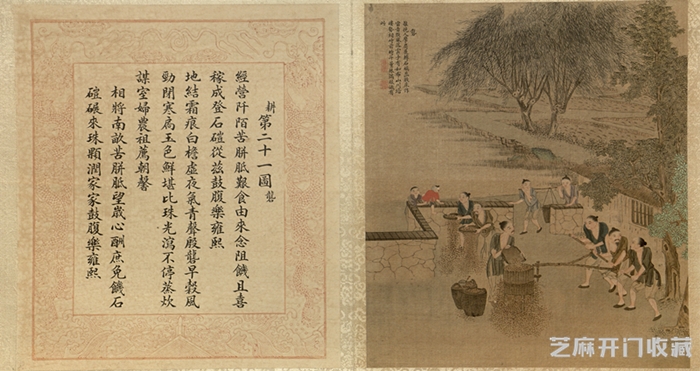 耕 第二十一圖 礱
經營阡陌苦胼胝艱食由來念阻饑且喜
稼成登石磑從茲鼓腹樂雍熙
地結霜痕白檐虛夜氣青聲殷礱早穀風
勁閉寒扃玉色鮮堪比珠光瀉不停蒸炊
謀室婦農祖薦朝馨
相將南畝苦胼胝望歲心酬庶免饑石
磑碾來珠顆潤家家鼓腹樂雍熙
芝麻开门收藏